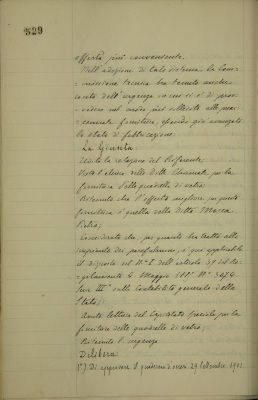 529
offerta più conveniente.
Nell'adozione di tale sistema la Com-
missione tecnica ha tenuto anche
conto dell'urgenza in cui si è di prov-
vedere nel modo più sollecito alla
fornitura, essendo già avanzato
lo stato di fabbricazione.
La Giunta
Udita la relazione del Referente
Visto l'elenco delle Ditte per la
fornitura delle quadrelle di vetro;
Ritenuto che l'offerta migliore in questa
fornitura è quella della ditta Mosca
Pietro;
Considerato che, per quanto ha tratto alla
è qui applicabile
il disposto nel N° dell'articolo del Re-
golamento 4 Maggio 1885 N° 3074
Serie III° sulla Contabilità generale dello
Stato;
Avuta lettura del Capitolato speciale per la
fornitura delle quadrelle di vetro;
Ritenuta l'urgenza
Delibera
1°) Di approvare il 29 Settembre